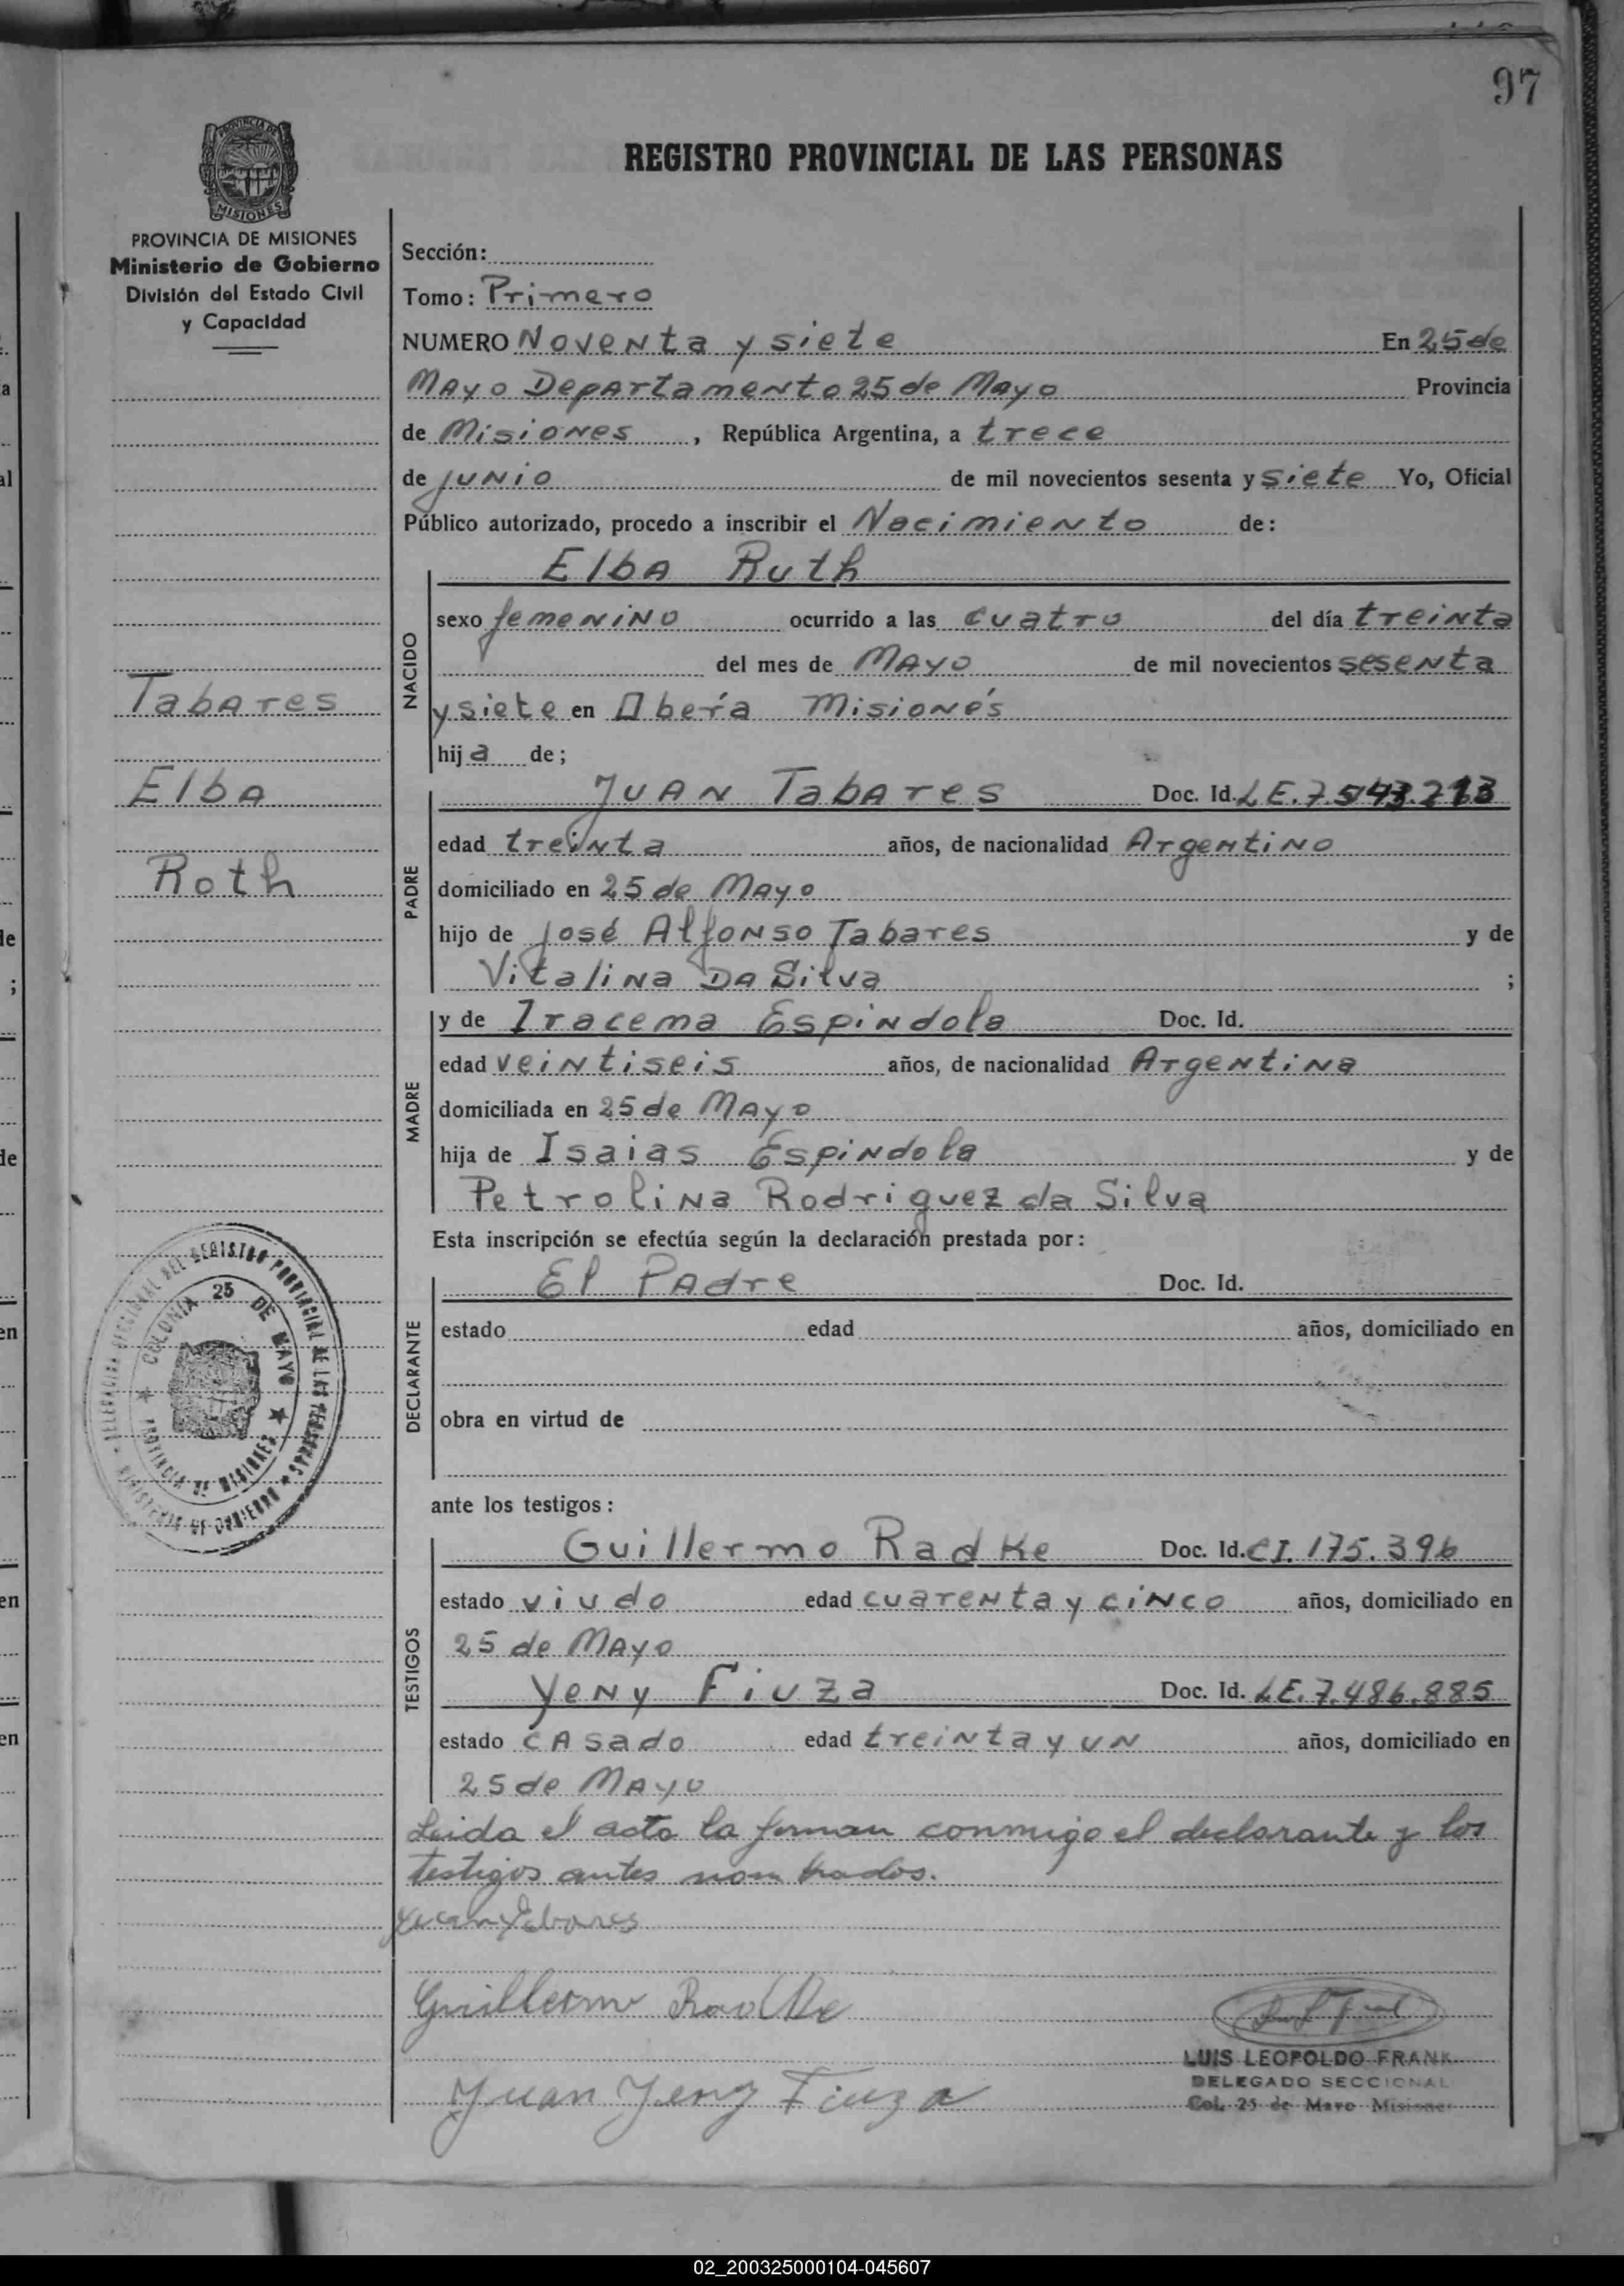 97
REGISTRO PROVINCIAL DE LAS PERSONAS
PROVINCIA DE MISIONES
PROVINCIA DE MISIONES
Ministerio de Gobierno
División del Estado Civil
y Capacidad
Tabares
Elba
Roth
Sección:
Tomo: Primero
NUMERO Noventa y siete En 25 de
Mayo Departamento 25 de Mayo Provincia
de Misiones, República Argentina, a trece
de junio de mil novecientos sesenta y siete Yo, Oficial
Público autorizado, procedo a inscribir el Nacimiento de:
NACIDO
Elba Ruth
sexo femenino ocurrido a las cuatro del día treinta
del mes de Mayo de mil novecientos sesenta
y siete en Oberá Misiones
hija de;
PADRE
Juan Tabares Doc. Id. LE.
edad treinta años, de nacionalidad Argentino
domiciliado en 25 de Mayo
hijo de José Alfonso Tabares y de
Vitalina Da Silva ;
MADRE
y de Iracema Espindola Doc. Id.
edad veintiseis años, de nacionalidad Argentina
domiciliada en 25 de Mayo
hija de Isaias Espindola y de
Petrolina Rodriguez da Silva
Esta inscripción se efectúa según la declaración prestada por:
DECLARANTE
El Padre Doc. Id.
estado edad años, domiciliado en
obra en virtud de
ante los testigos:
TESTIGOS
Guillermo Radke Doc. Id. CI. 175.396
estado viudo edad cuarenta y cinco años, domiciliado en
25 de Mayo
Yeny Fiuza Doc. Id. LE. 7.486.885
estado casado edad treinta y un años, domiciliado en
25 de Mayo
Leida el acta la firman conmigo el declarante y los
testigos antes nombrados.
Juan Tabares
Guillermo Radke
Juan Yeny Fiuza
LUIS LEOPOLDO FRANK
DELEGADO SECCIONAL
Col. 25 de Mayo Misiones
DELEGACION SECCIONAL DEL REGISTRO PROVINCIAL DE LAS PERSONAS
MINISTERIO DE GOBIERNO
COLONIA 25 DE MAYO
PROVINCIA DE MISIONES
02_200325000104-045607